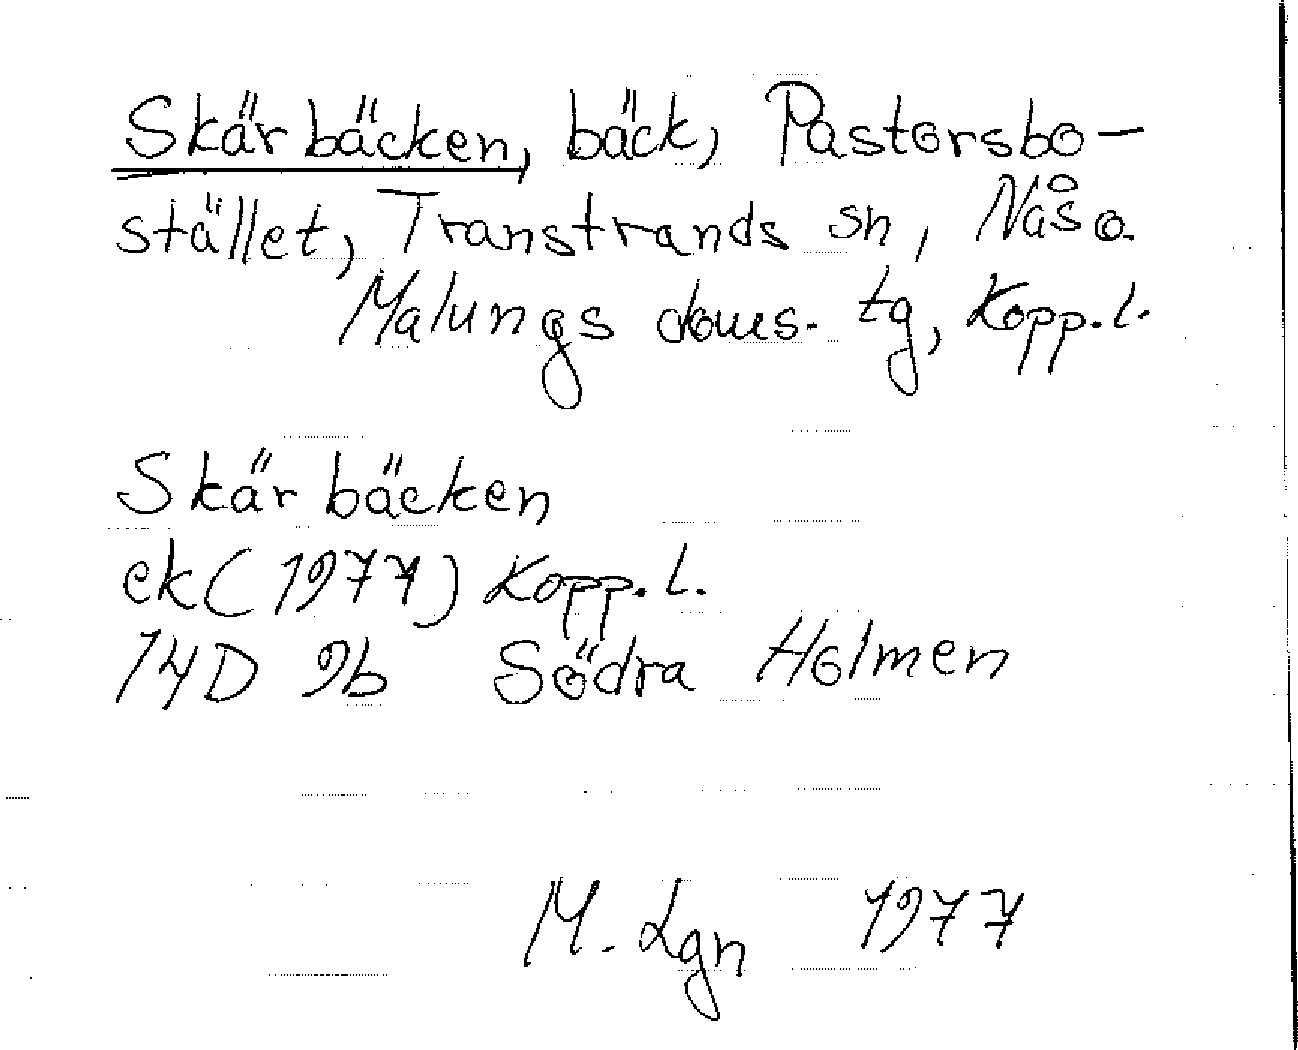 Skärbäcken, bäck, Pastorsbo-
stället, Transtrands sn, Nås o.
Malungs doms. tg, Kopp. l.
Skärbäcken
ek (1977) Kopp. l.
14D 9b Södra Holmen
M. Lgn 1977